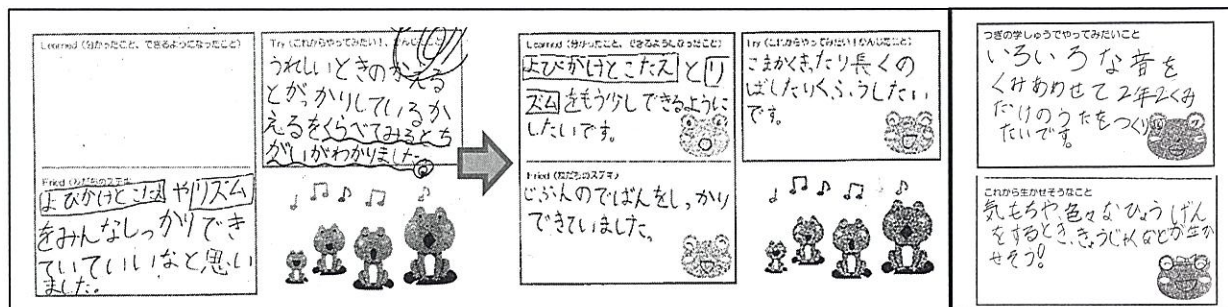 Learned (分かったこと、できるようになったこと)
Try (これからやってみたい!、かんじたこと)
うれしいときのかえる
とがっかりしているか
えるをくらべてみるとち
がいがわかりました。
Fried (友だちのステキ)
よびかけとこたえやリズム
をみんなしっかりでき
ていていいなと思い
ました。
Learned (分かったこと、できるようになったこと)
よびかけとこたえとリ
ズムをもう少しできるように
したいです。
Fried (友だちのステキ)
じぶんのでばんをしっかり
できていました。
Try (これからやってみたい!かんじたこと)
こまかくきったり長くの
ばしたりくふうしたい
です。
つぎの学しゅうでやってみたいこと
いろいろな音を
くみあわせて2年2くみ
だけのうたをつくり
たいです。
これから生かせそうなこと
気もちや、色々なひょうげん
をするとき、きょうじゃくなどが生か
せそう!